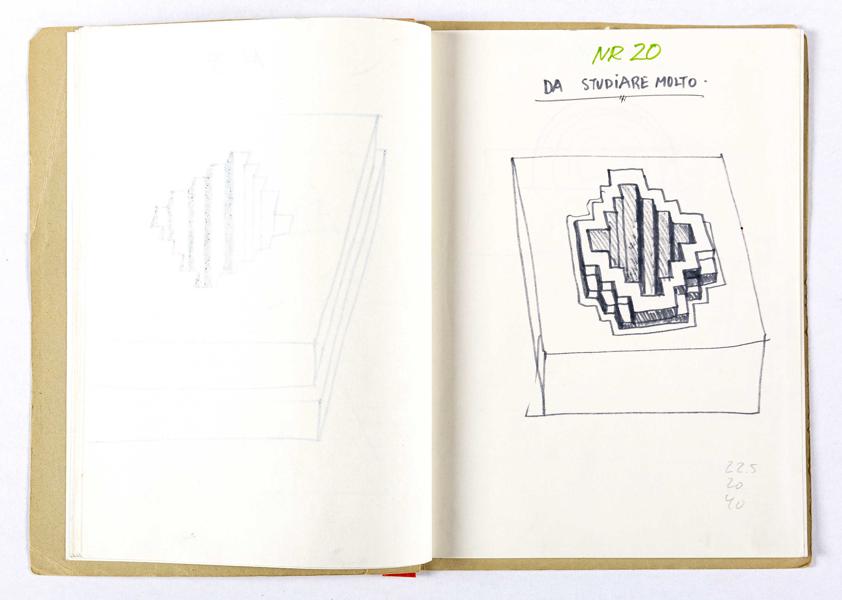 NR 20
DA STUDIARE MOLTO.
22.5
20
40